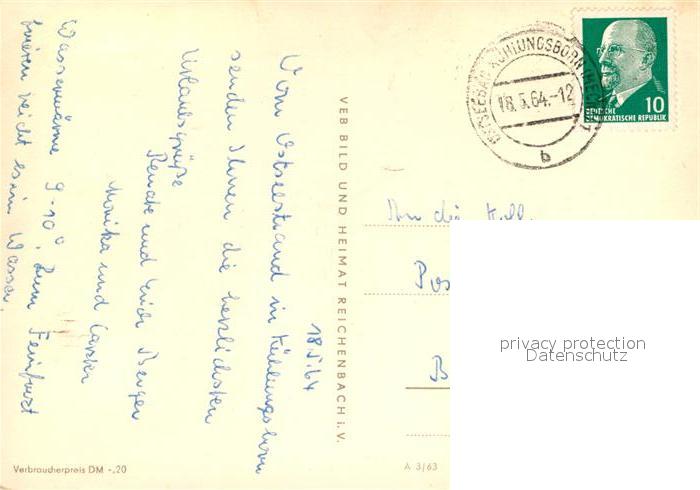 18.5.64
Vom Ostseestrand in Kühlungsborn
senden Ihnen die herzlichsten
Urlaubsgrüße
Renate und Erich Berger
Monika und Carsten
Wasserwärme 9-10°. Zum
reicht es im Wasser.
VEB BILD UND HEIMAT REICHENBACH i. V.
OSTSEEBAD KÜHLUNGSBORN
18.5.64.-12
b
10
DEUTSCHE
DEMOKRATISCHE REPUBLIK
An die Koll.
privacy protection
Datenschutz
Verbraucherpreis DM -,20
A 3/63